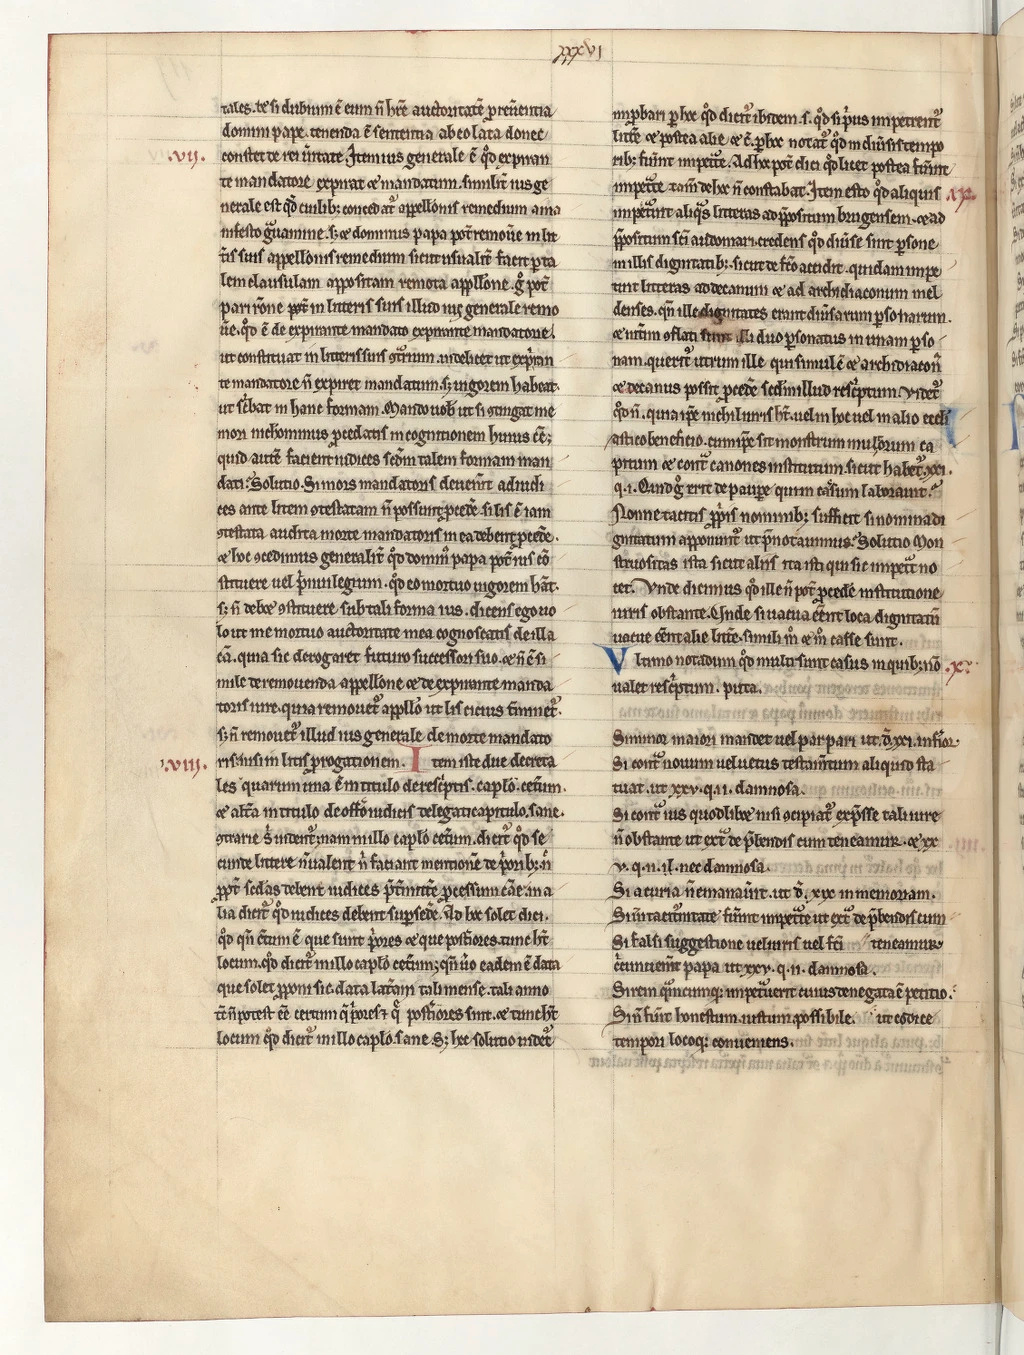 xxxvi
tales. et si dubium ē eum n̄ hr̄e auctoritatē pren̄entia
domini pape. tenenda ē sententia ab eo lata donec
.vii. constet de rei ūitate. Item ius generale ē qd̓ expiran
te mandatore expirat et mandatum. similit̓ ius ge
nerale est qd̓ cuilib; concedat̓ appellōnis remedium a ma
nifesto g̓uamine. s; et dominus papa pot̓ remoūe in lit
t̓is suis appellōnis remedium sicut usualit̓ facit p ta
lem clausulam appositam remota appllōne. g̊ pot̓
pari r̄one pot̓ in litteris suis illud ius generale remo
ūe. qd̓ ē de expirante mandato expirante mandatore.
ut constituat in litteris suis 9t̓rium. uidelicet ut expiran
te mandatore n̄ expiret mandatum. s; uigorem habeat.
ut sc̓bat in hanc formam. Mando uob̓ ut si 9tingat me
mori nichominus pcedatis in cognitionem huius cē;
quid autē facient iudices scd̓m talem formam man
dati. Solutio. Si mors mandatoris deuen̄it ad iudi
ces ante litem 9testatam n̄ possunt pcede̓. si lis ē iam
9testata audita morte mandatoris in ea debent pcede̓.
et hoc 9cedimus generalit̓ qd̓ domin̓ papa pot̓ ius cō
stituere uel p̓uilegium. qd̓ eo mortuo uigorem hāt.
s; n̄ debet 9stituere sub tali forma ius. dicens ego uo
lo ut me mortuo auctoritate mea cognoscatis de illa
cā. quia sic derogaret futuro successori suo. et n̄ ē si
mile de remouenda appellōne et de expirante manda
toris iure. quia remouet̓ appllō ut lis citius t̓minet̓.
s; n̄ remouet̓ illud ius generale de morte mandato
.viii. ris nisi in litis progationem. Item iste due decreta
les quarum una ē in titulo de rescp̓tis. caplō. cet̓um.
et alt̓a in titulo de offō iudicis delegati capitulo. sane.
9trarie s̓ uident̓. nam in illo caplō cet̓um. dicit̓ qd̓ se
cunde littere n̄ ualent n̄ faciant mentionē de p̓orib; n̄
ppt̓ sc̄das debent iudices p̓t̓mitte̓ pcessum cāe. in a
lia dicit̓ qd̓ iudices debent supsede̓. Ad hec solet dici.
qd̓ qn̄ c̓tum ē que sunt p̓ores et que post̓iores. tunc ht̓
locum. qd̓ dicit̓ in illo caplō cet̓um; qn̄ ūo eadem ē data
que solet pponi sic. data lat̓ani tali mense. tali anno
tē n̄ potest eē certum q̄ p̓ores et q̄ post̓iores sint. et tunc ht̓
locum qd̓ dicit̓ in illo caplō. sane. S; hec solutio uidet̓
inpbari p hec qd̓ dicit̓ ibidem. s. qd̓ si p̓us impetrent̓
litt̓e et postea alie et c̄. p hec notat̓ qd̓ in diūsis tempo
rib; fūint impet̓te. Ad hec pot̓ dici qd̓ licet postea fūint
impet̓te tam̄ de hec n̄ constabat. Item esto qd̓ aliquis .ix.
impet̓uit aliq̓s litteras ad ppositum brugensem. et ad
ppositum sc̄i audomari. credens qd̓ diūse sint psone
in illis dignitatib;. sicut de fc̄o accidit. quidam impe
t̓uit litteras ad decanum et ad archidiaconum mel
denses. qn̄ ille dignitates erant diūsarum psonarum.
et nūm 9flati sunt illi duo psonatus in unam pso
nam. querit̓ utrum ille qui simul ē et archidiacon̄
et decanus possit pcede̓ scd̓m illud resc̓ptum. Videt̓
qd̓ n̄. quia ipē nichil iuris ht̓. uel in hoc uel in alio eccli
astico beneficio. cum ipē sit monstrum multorum ca
pitum et cont̓ canones institutum. sicut habet̓. xxi.
q. i. Quid g̊ erit de paupe qui in cāsum laborauit.
Nonne tacitis pp̓is nominib; sufficit si nomina di
gnitatum apponunt̓ ut p̄notauimus. Solutio Mon
struositas ista sicut aliis ita isti qui sic impet̓uit no
cet. Vnde dicimus qd̓ ille n̄ pot̓ pcede̓ institutione
iuris obstante. Unde si uacua ēent loca dignitatū
uacue ēent alie litt̓e. simili m̊ et m̊ casse sunt.
Vltimo notadum qd̓ multi sunt casus in quib; nō .x.
ualet resc̓ptum. puta.
Si minor maiori mandet uel par pari ut. d̄. xxi. inf̓ior.
Si cont̓ nouum uel uetus testam̄tum aliquid sta
tuat. ut xxv. q. ii. damnosa.
Si cont̓ ius quodlibet nisi 9cipiat̓ exp̓sse tali iure
n̄ obstante ut ext̓ de p̓bendis cum teneamur. et xx
v. q. ii. .il. nec damnosa.
Si a curia n̄ emanau̓it. ut d̄. xix in memoriam.
Si ūi taciturnitate fūint impet̓te ut ext̓ de p̓bendis cum
Si falsi suggestione uel iuris uel fc̄i teneamur
c̓cumuenit̓ papa ut xxv. q. ii. damnosa.
Si rem q̓mcumq; impet̓uerit cuius denegata ē petitio.
Si n̄ fūit honestum. iustum. possibile. ut eodice
tempori locoq; conueniens.